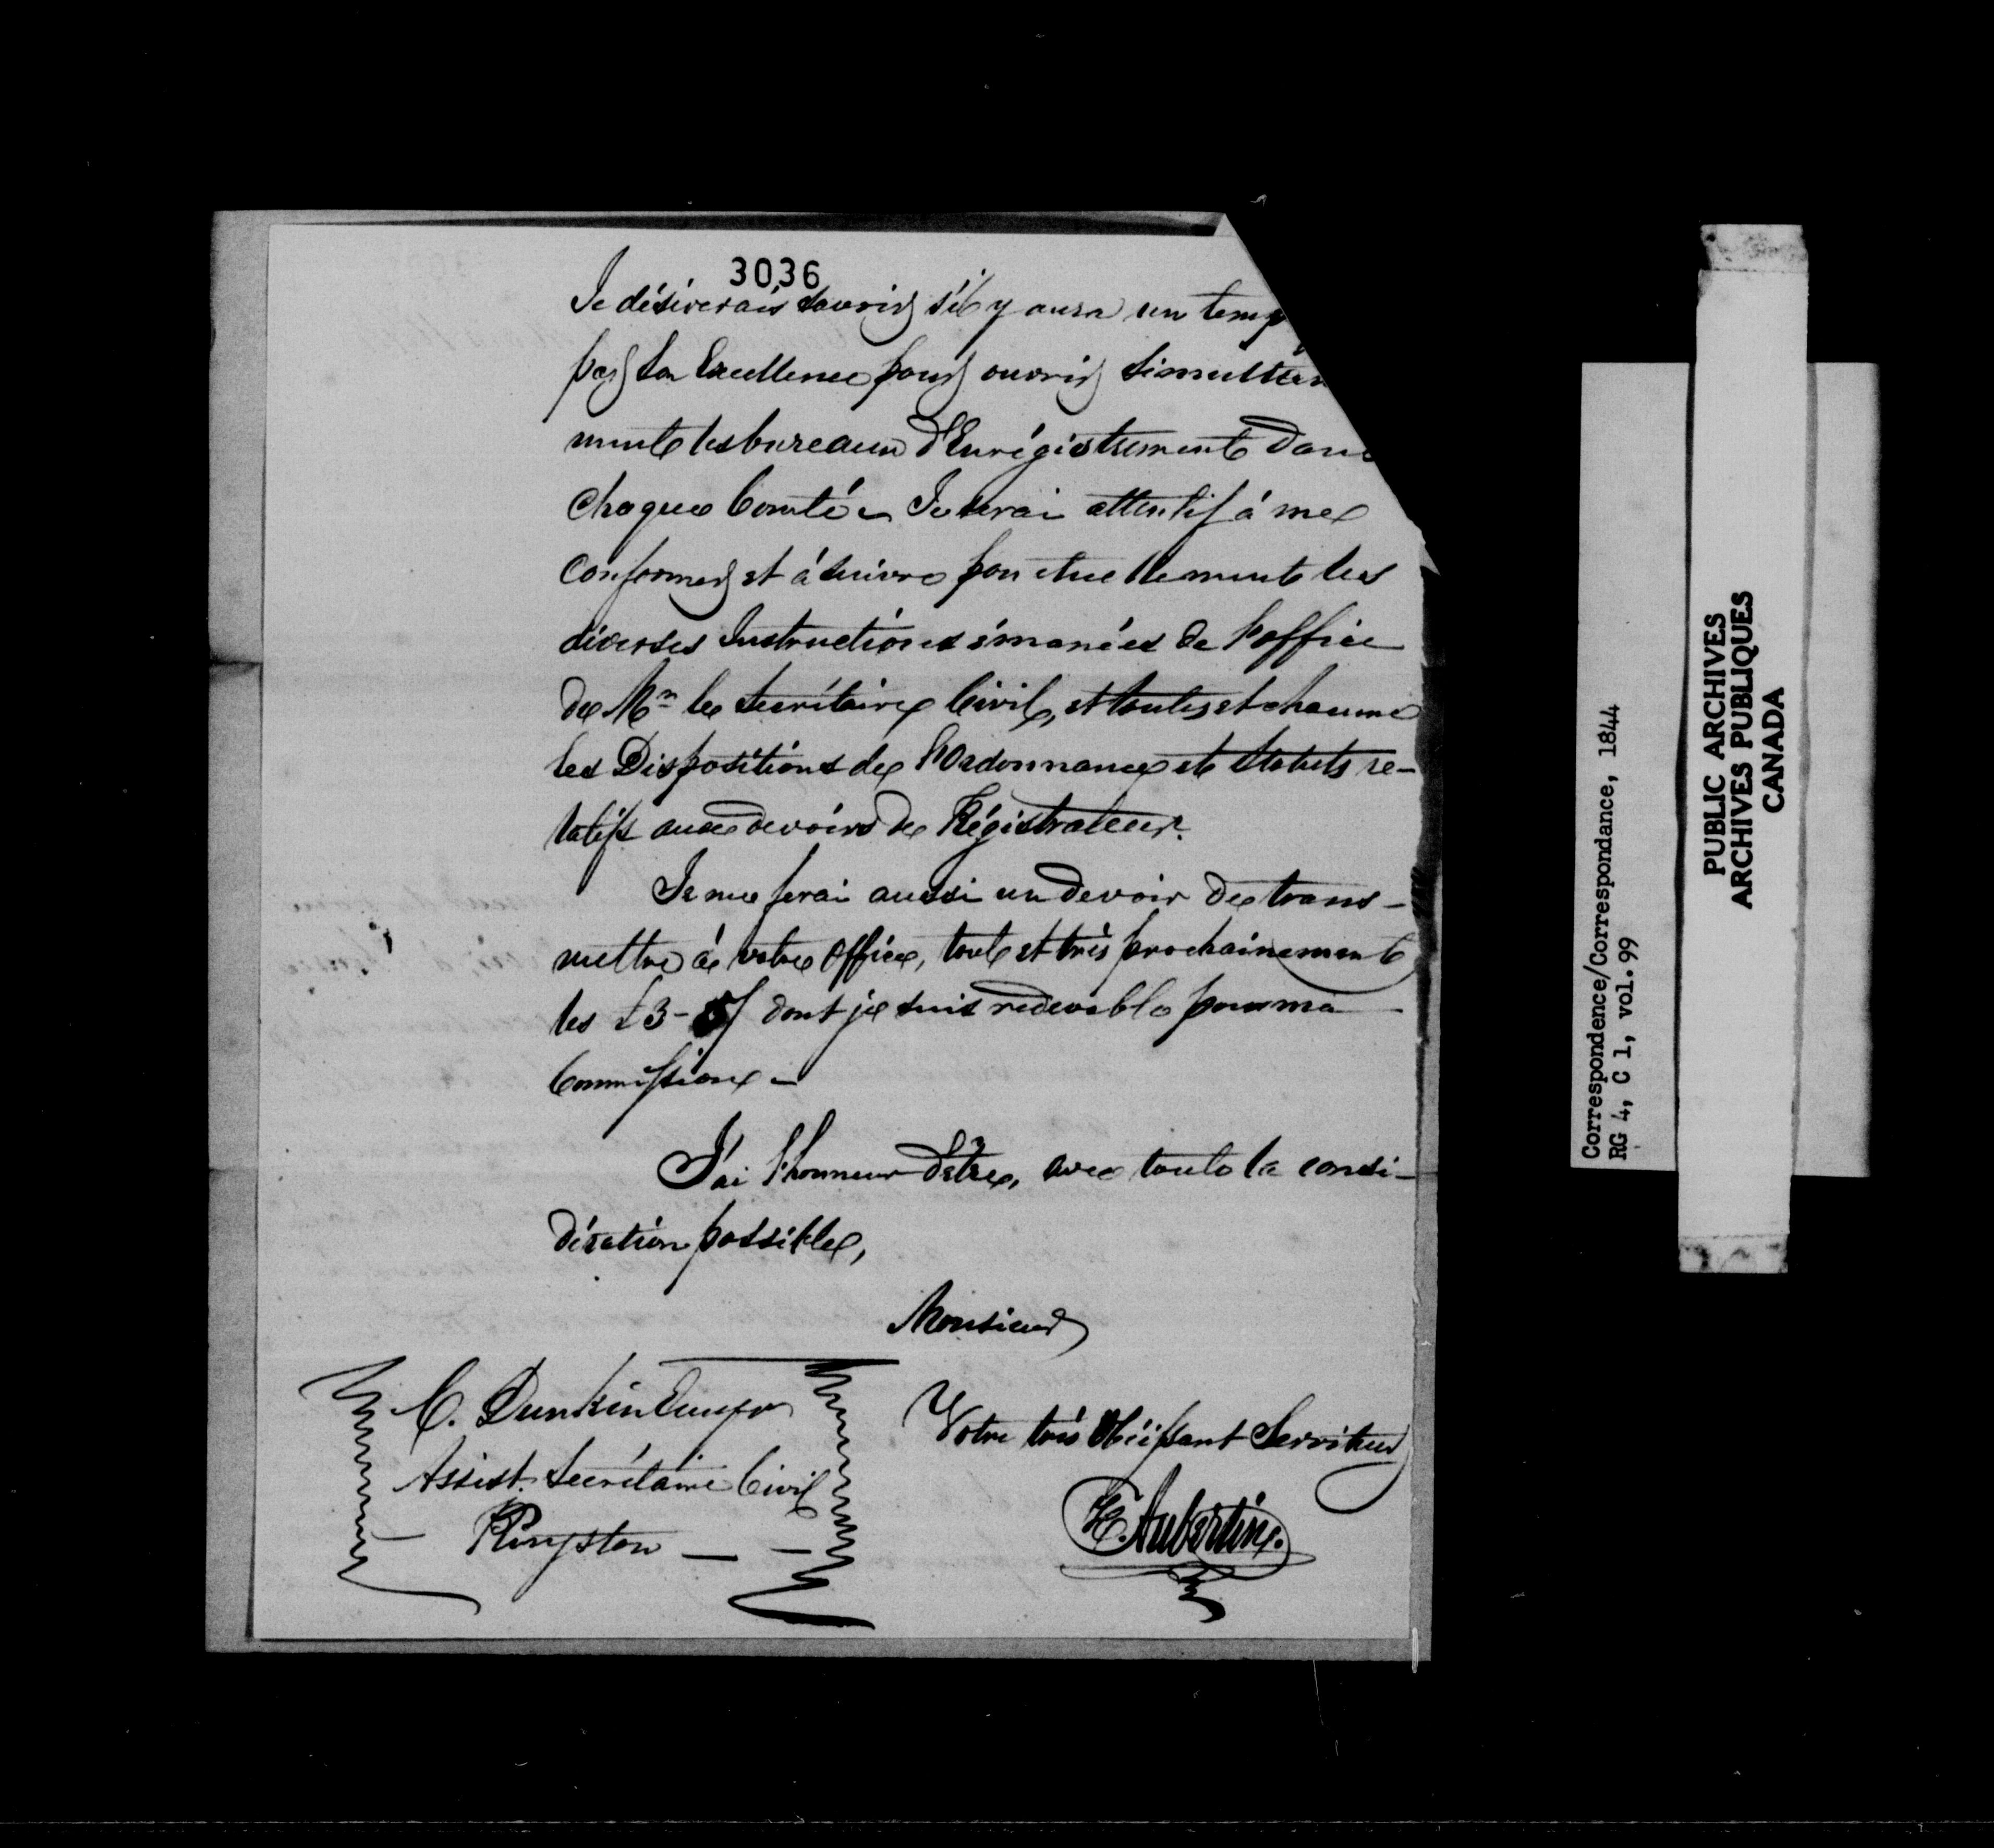 3036
Je désirerais savoir s'il y aura un temp
par Son Excellence pour ouvrir simultan
ment les bureaux d'Enrégistrement dans
chaque Comté. Je serai attentif à me
conformer et à suivre ponctuellement les
diverses Instructions émanées de l'office
de Mr le Secrétaire Civil, et toutes et chacune
les Dispositions de l'Ordonnance et Statuts re-
latifs aux devoirs de Régistrateur.
Je me ferai aussi un devoir de trans-
mettre à votre Office, toute et très prochainement
les £3- dont je suis redevable pour ma
Commission -
J'ai l'honneur d'être, avec toute la consi-
dération possible,
Monsieur
Votre très Obéissant Serviteur
Aubertin.
C. Dunkin Ecuyer
Assist. Secrétaire Civil
- Kingston - -
Correspondence/Correspondance, 1844
RG 4, C 1, vol.99
PUBLIC ARCHIVES
ARCHIVES PUBLIQUES
CANADA